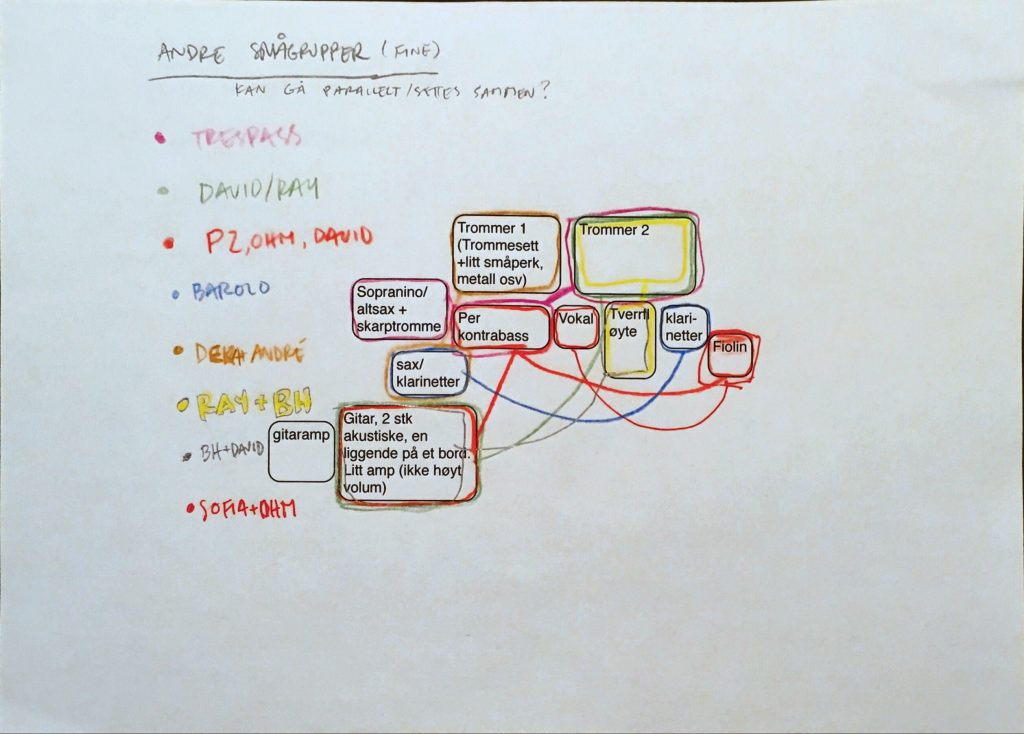 ANDRE SMÅGRUPPER (FINE)
KAN GÅ PARALLELT/SETTES SAMMEN?
• TRESPASS
• DAVID/RAY
• PZ, OHM, DAVID
• BAROLO
• DEKA+ANDRÉ
• RAY+BH
• BH+DAVID
• SOFIA+OHM
Trommer 1
(Trommesett
+litt småperk,
metall osv)
Trommer 2
Sopranino/
altsax +
skarptromme
Per
kontrabass
Vokal
Tverrfl
øyte
klari-
netter
Fiolin
sax/
klarinetter
gitaramp
Gitar, 2 stk
akustiske, en
liggende på et bord.
Litt amp (ikke høyt
volum)